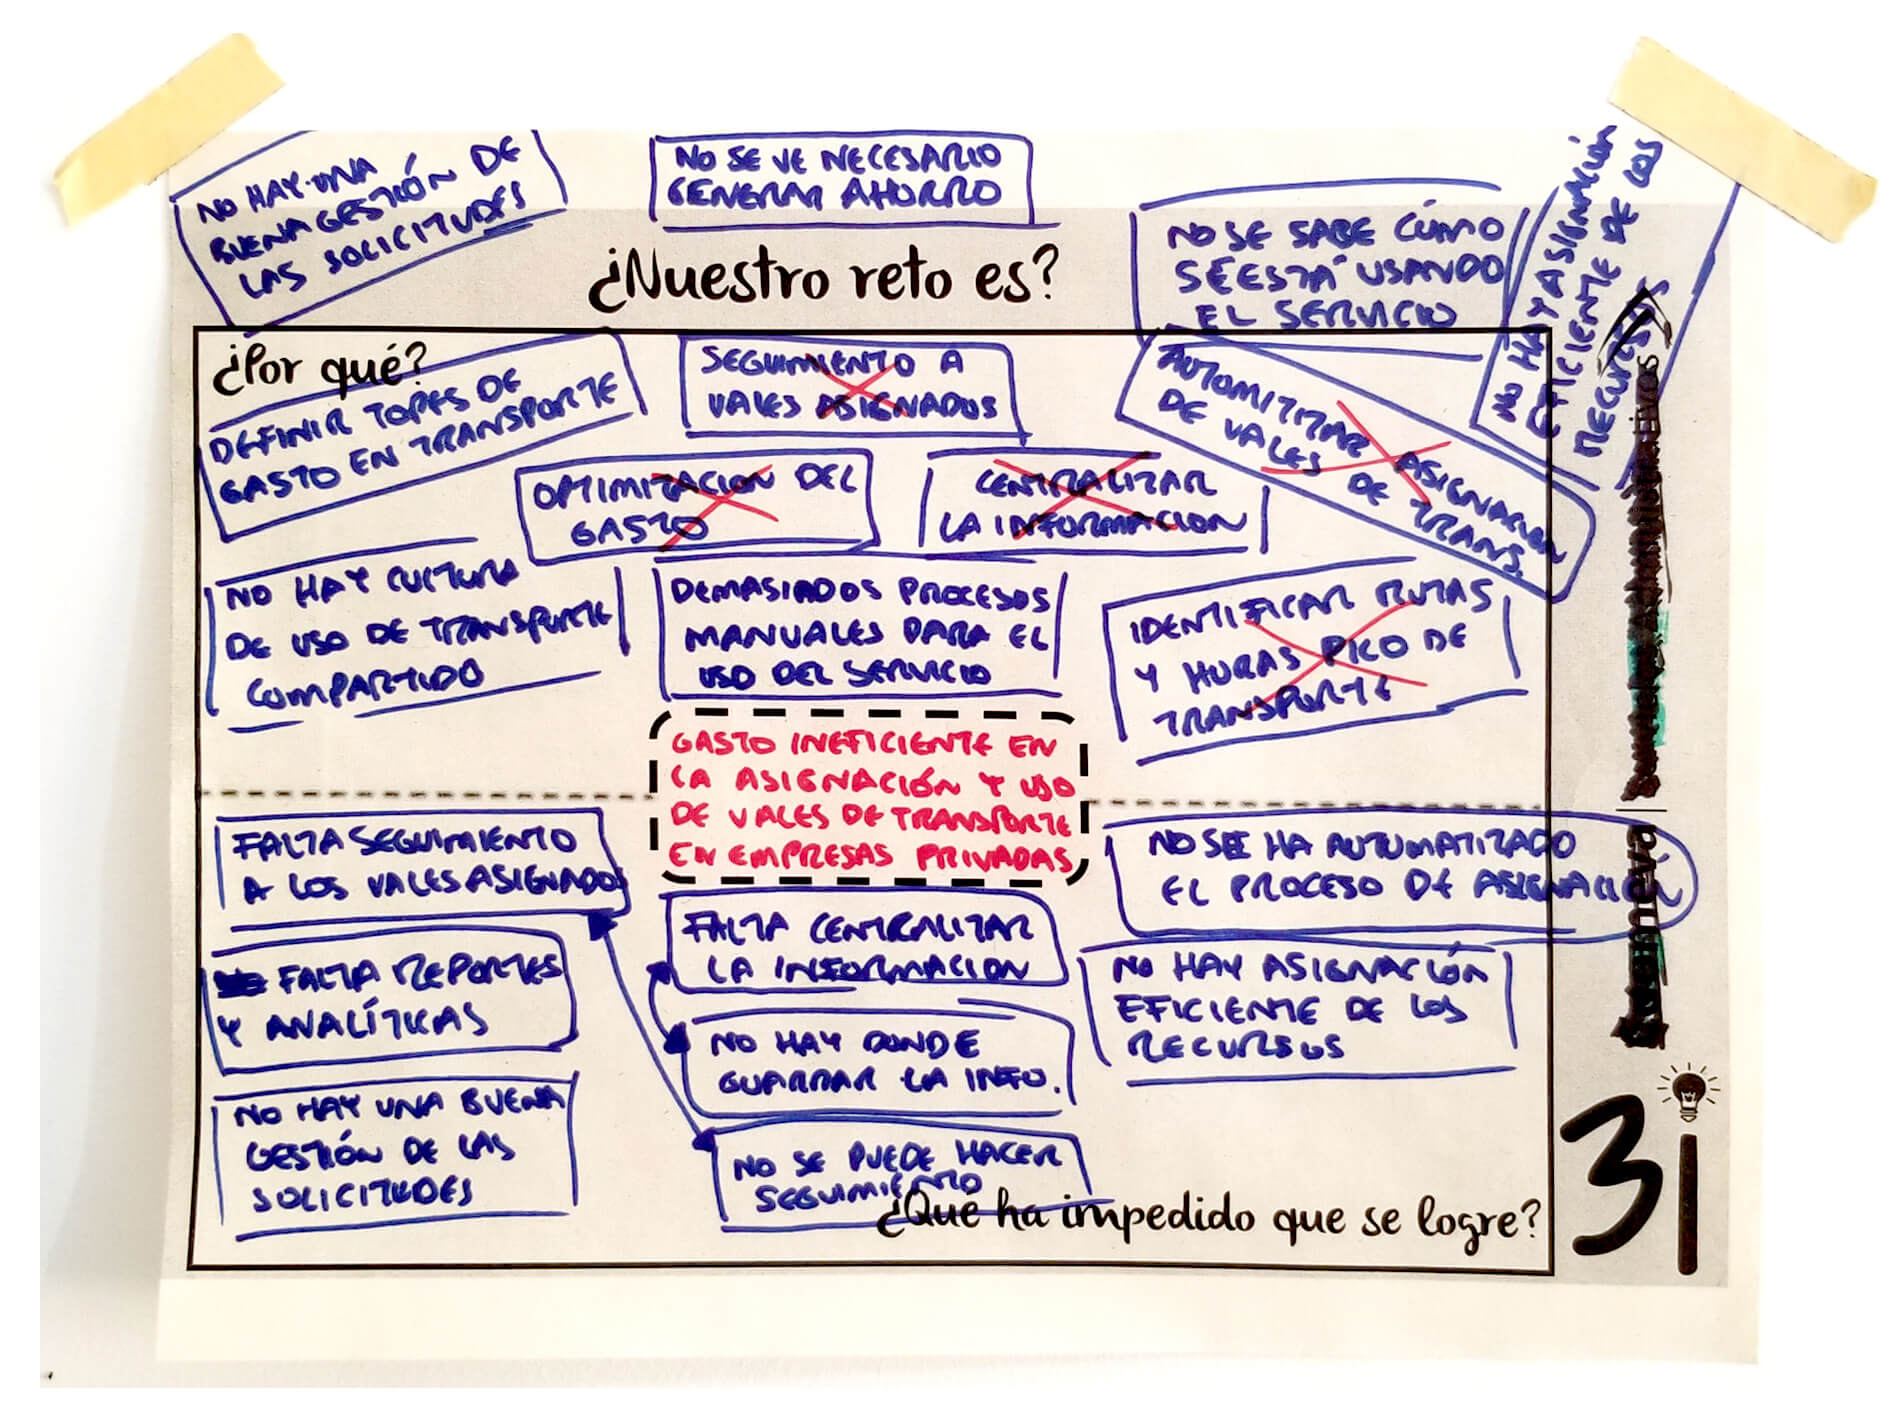 NO HAY UNA
BUENA GESTIÓN DE
LAS SOLICITUDES
NO SE VE NECESARIO
GENERAR AHORRO
NO SE SABE CÓMO
SE ESTÁ USANDO
EL SERVICIO
NO HAY ASIGNACIÓN
EFICIENTE DE LOS
RECURSOS
¿Nuestro reto es?
¿Por qué?
DEFINIR TOPES DE
GASTO EN TRANSPORTE
SEGUIMIENTO A
VALES ASIGNADOS
AUTOMITIZAR ASIGNACION
DE VALES DE TRANS.
OPTIMIZACION DEL
GASTO
CENTRALIZAR
LA INFORMACION
NO HAY CULTURA
DE USO DE TRANSPORTE
COMPARTIDO
DEMASIADOS PROCESOS
MANUALES PARA EL
USO DEL SERVICIO
IDENTIFICAR RUTAS
Y HORAS PICO DE
TRANSPORTE
GASTO INEFICIENTE EN
LA ASIGNACIÓN Y USO
DE VALES DE TRANSPORTE
EN EMPRESAS PRIVADAS
FALTA SEGUIMIENTO
A LOS VALES ASIGNADOS
FALTA REPORTES
Y ANALÍTICAS
NO HAY UNA BUENA
GESTIÓN DE LAS
SOLICITUDES
FALTA CENTRALIZAR
LA INFORMACION
NO HAY DONDE
GUARDAR LA INFO.
NO SE PUEDE HACER
SEGUIMIENTO
NO SE HA AUTOMATIZADO
EL PROCESO DE ASIGNACIÓN
NO HAY ASIGNACIÓN
EFICIENTE DE LOS
RECURSOS
¿Qué ha impedido que se logre?
3i